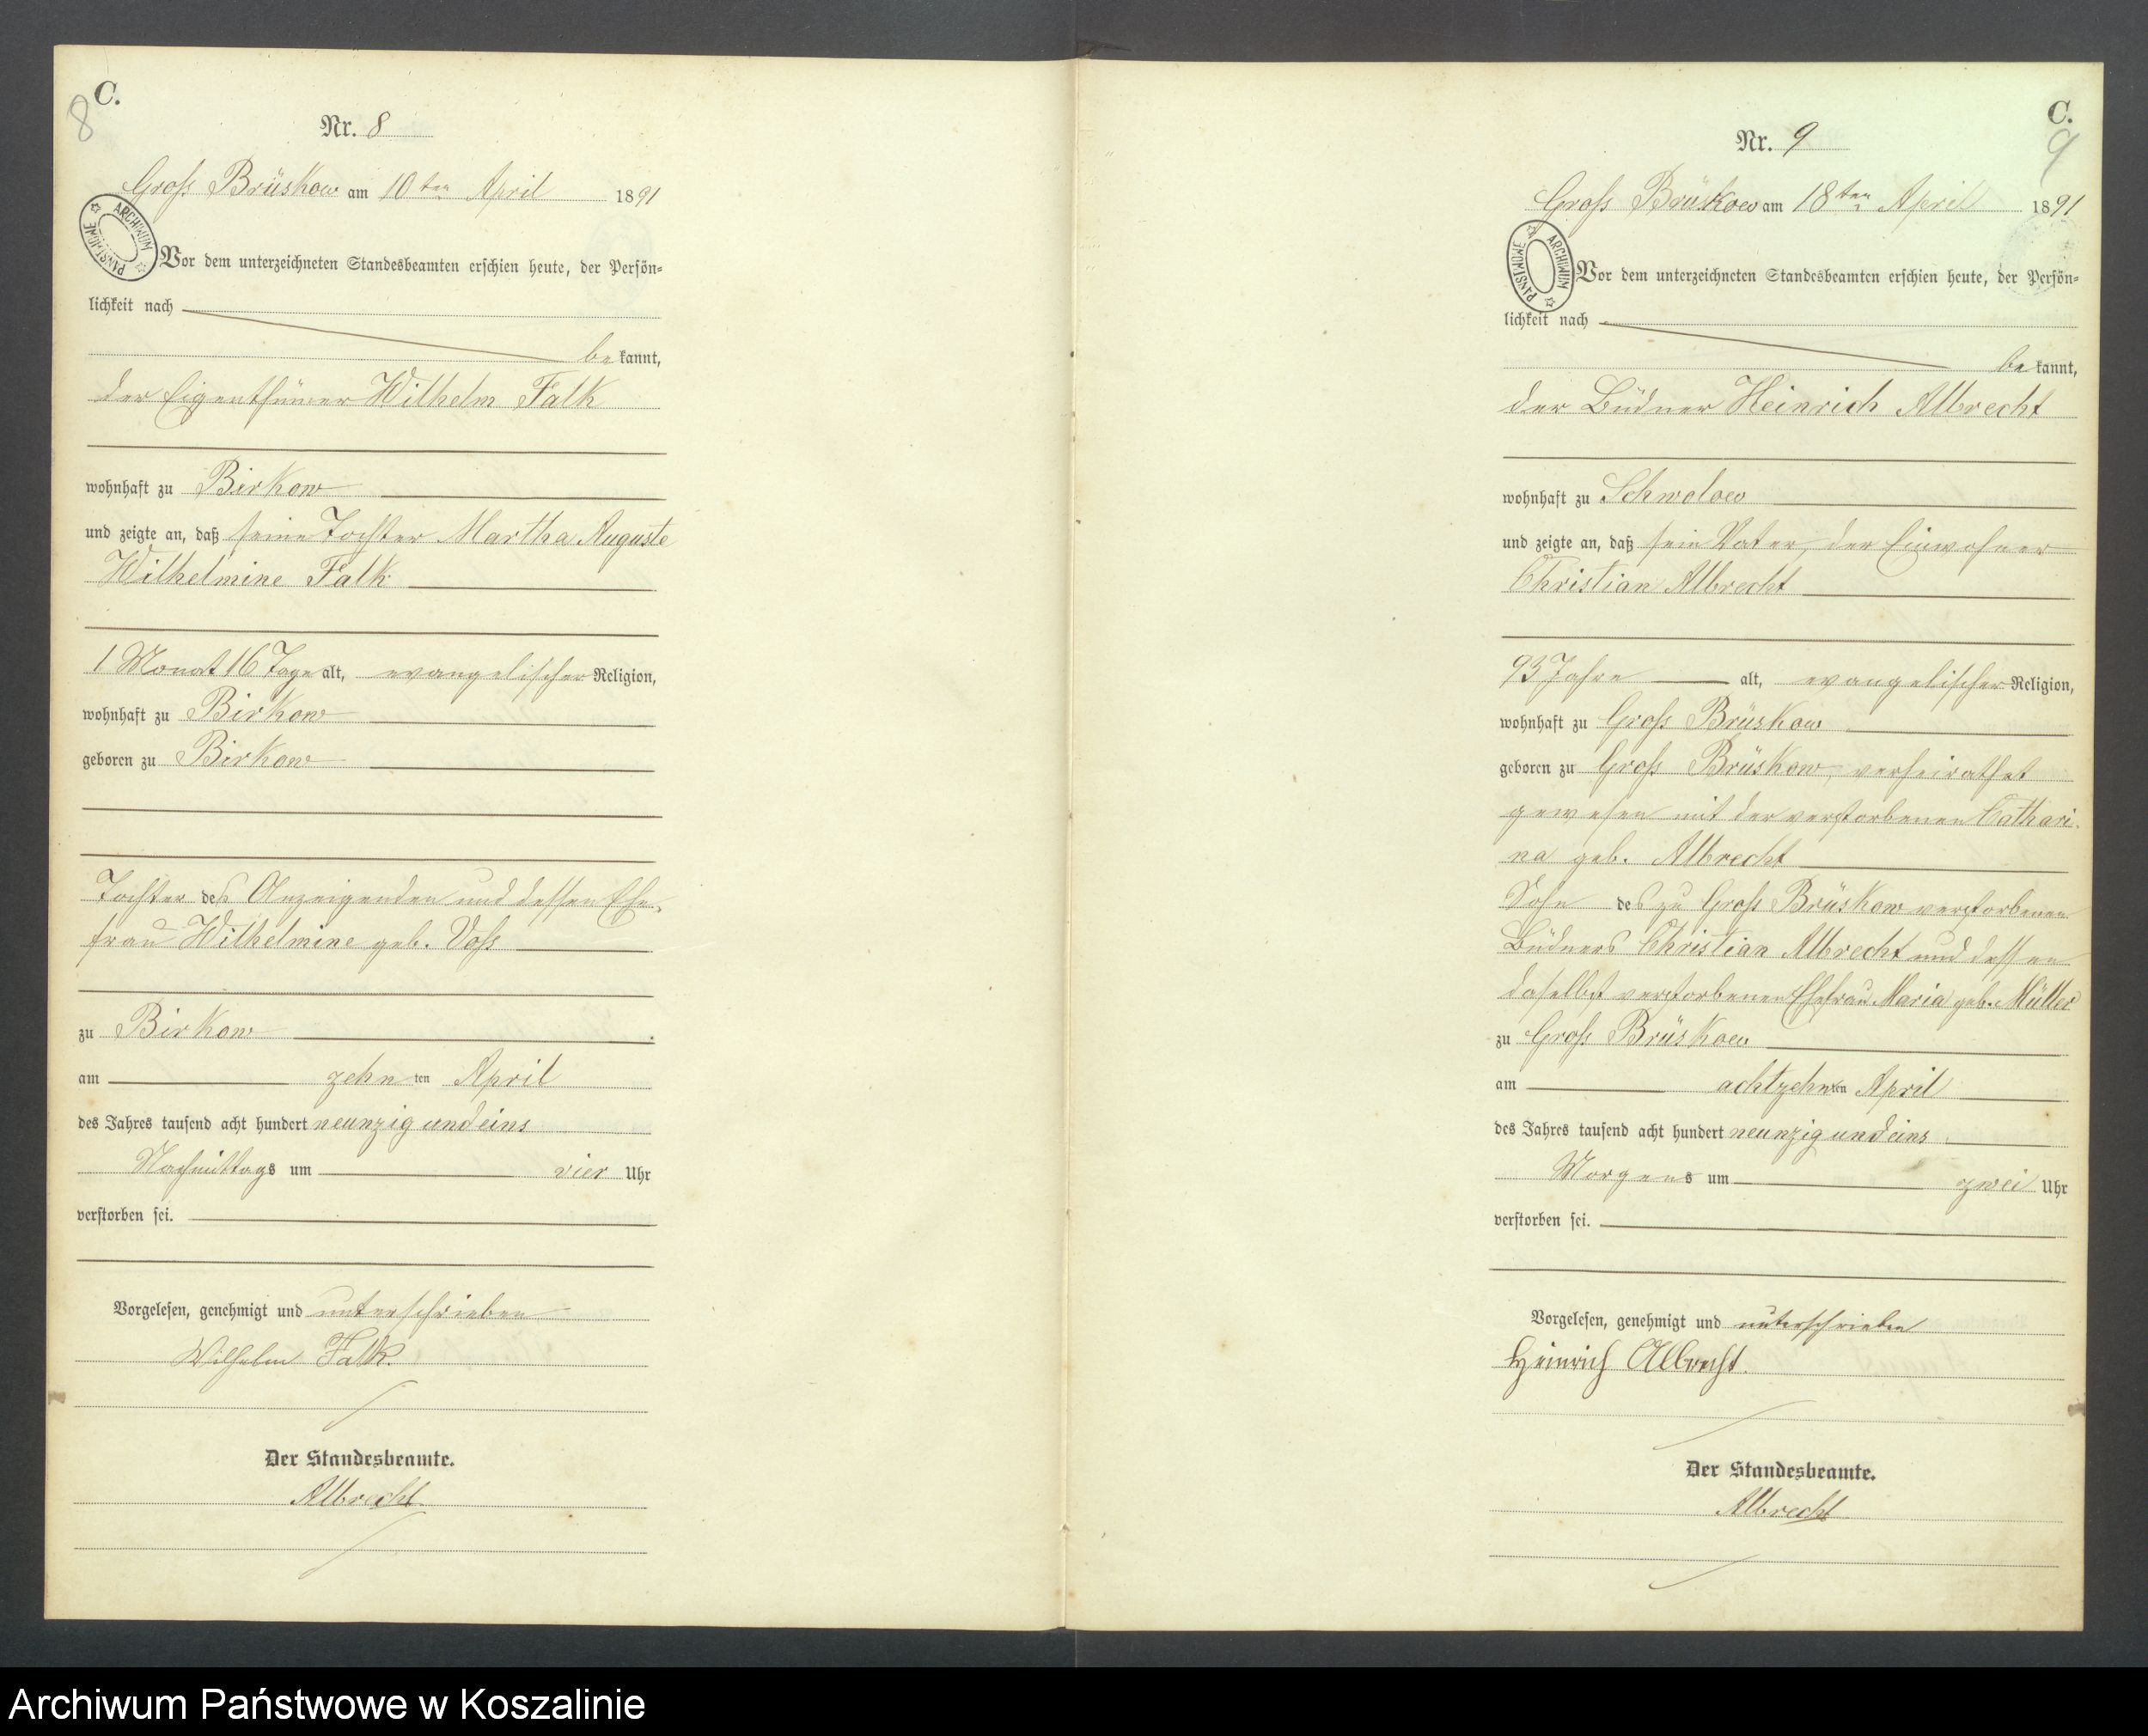 C.
8
Nr. 8
Groß Brüskow am 10ten April 1891
ARCHIWUM PAŃSTWOWE
Vor dem unterzeichneten Standesbeamten erschien heute, der Persön=
lichkeit nach
be kannt,
der Eigenthümer Wilhelm Falk
wohnhaft zu Birkow
und zeigte an, daß seine Tochter Martha Auguste
Wilhelmine Falk
1 Monat 16 Tage alt, evangelischer Religion,
wohnhaft zu Birkow
geboren zu Birkow
Tochter des Anzeigenden und dessen Ehe-
frau Wilhelmine geb. Voß
zu Birkow
am zehn ten April
des Jahres tausend acht hundert neunzig und eins
Nachmittags um vier Uhr
verstorben sei.
Vorgelesen, genehmigt und unterschrieben
Wilhelm Falk.
Der Standesbeamte.
Albrecht
C.
9
Nr. 9
Groß Brüskow am 18ten April 1891
ARCHIWUM PAŃSTWOWE
Vor dem unterzeichneten Standesbeamten erschien heute, der Persön=
lichkeit nach
be kannt,
der Büdner Heinrich Albrecht
wohnhaft zu Schwolow
und zeigte an, daß sein Vater, der Einwohner
Christian Albrecht
93 Jahre alt, evangelischer Religion,
wohnhaft zu Groß Brüskow
geboren zu Groß Brüskow, verheirathet
gewesen mit der verstorbenen Cathari-
na geb. Albrecht
Sohn des zu Groß Brüskow verstorbenen
Büdners Christian Albrecht und dessen
daselbst verstorbenen Ehefrau Maria geb. Müller
zu Groß Brüskow
am achtzehnten April
des Jahres tausend acht hundert neunzig und eins
Morgens um zwei Uhr
verstorben sei.
Vorgelesen, genehmigt und unterschrieben
Heinrich Albrecht.
Der Standesbeamte.
Albrecht
Archiwum Państwowe w Koszalinie